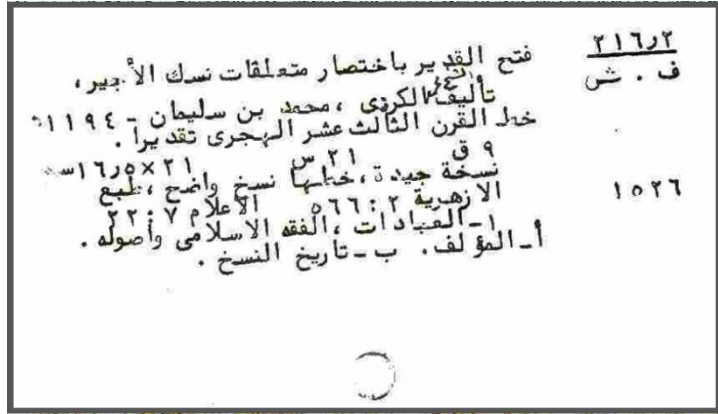 ٢١٦٫٢
ف . ش
فتح القدير باختصار متعلقات نسك الأجير،
تأليف الكردى ،محمد بن سليمان - ١١٩٤ه
خط القرن الثالث عشر الهجرى تقديرا .
٩ ق ٢١ س ٢١×١٦٫٥سم
١٥٢٦
نسخة جيدة ،خطها نسخ واضح ،طبع
الازهرية ٢ : ٥٦٦ الاعلام ٧ : ٢٢
١-العبادات ،الفقه الاسلامى وأصوله .
أ-المؤلف. ب-تاريخ النسخ .